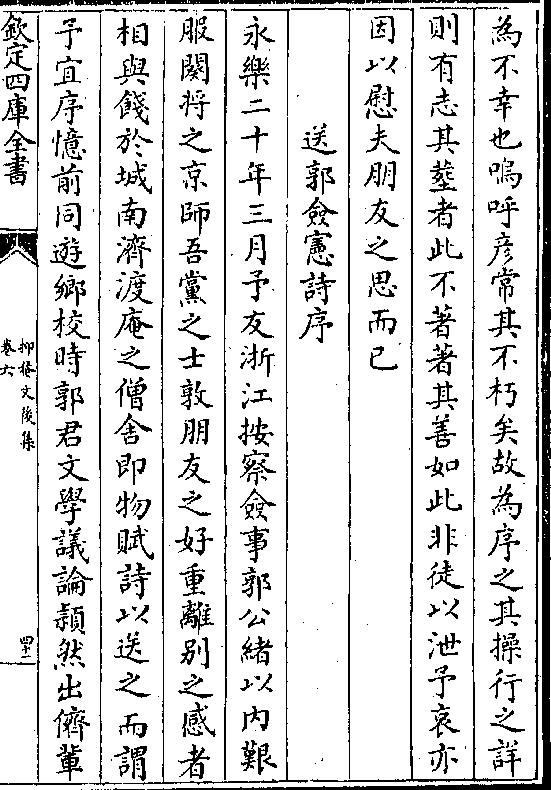 為不幸也嗚呼彦常其不朽矣故為序之其操行之詳
則有志其墓者此不著著其善如此非徒以泄予哀亦
因以慰夫朋友之思而已
送郭僉憲詩序
永樂二十年三月予友浙江按察僉事郭公緒以内艱
服闋将之京師吾黨之士敦朋友之好重離别之感者
相與餞於城南濟渡庵之僧舍即物賦詩以送之而謂
予宜序憶前同遊鄉校時郭君文學議論頴然出儕輩
欽定四庫全書
抑菴文後集
卷六
四十一